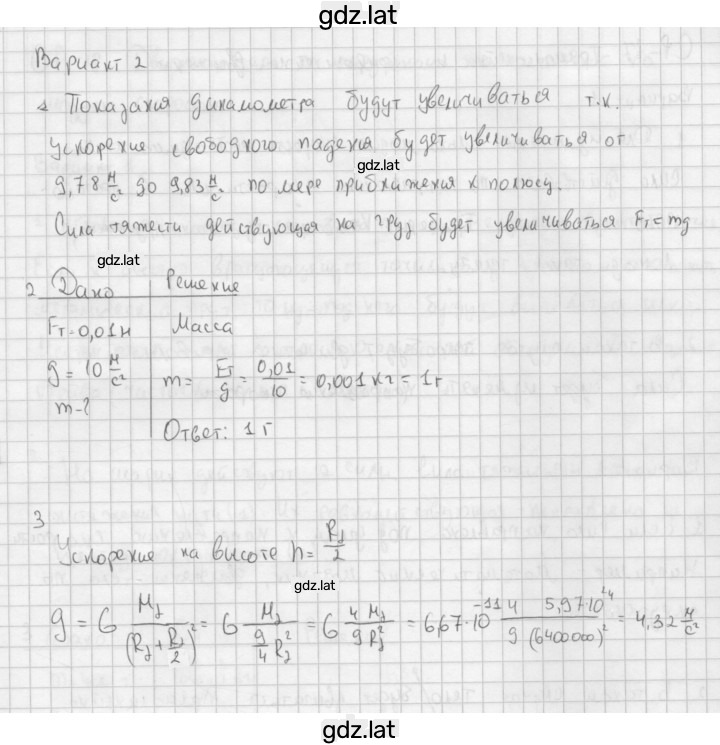 gdz.lat
Вариант 2
1 Показания динамометра будут увеличиваться т.к.
ускорение свободного падения будет увеличиваться от
gdz.lat
9,78 м/с² до 9,83 м/с² по мере приближения к полюсу.
Сила тяжести действующая на груз будет увеличиваться Fт = mg
gdz.lat
2 Дано Решение
Fт = 0,01 н Масса
g = 10 м/с² m = Fт/g = 0,01/10 = 0,001 кг = 1 г
m - ?
Ответ: 1 г
3
Ускорение на высоте h = Rз/2
gdz.lat
g = G Mз/(Rз + Rз/2)² = G Mз/(9/4 Rз²) = G 4 Mз/9 Rз² = 6,67·10⁻¹¹ 4 5,97·10²⁴/9 (6400000)² = 4,32 м/с²
gdz.lat